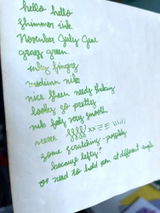 hello hello
shimmer ink
November July June
grassy green
inky fingers
medium nib
nice sheen needs shaking
looks so pretty
nib feels very smooth
some scratching - possibly
because lefty!
or need to hold pen at different angle